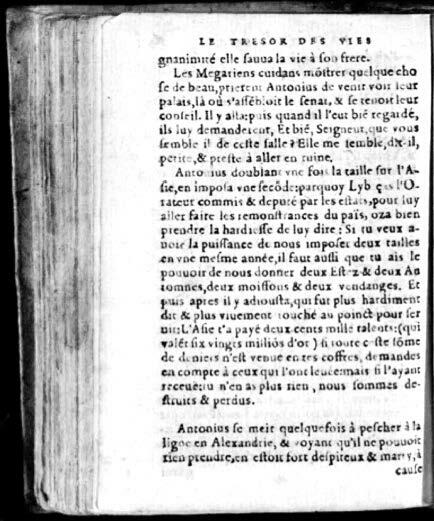 LE TRESOR DES VIES
gnanimité elle sauua la vie à son frere.
Les Megariens cuidans mõstrer quelque cho
se de beau, prierent Antonius de venir voir leur
palais, là où s'assẽbloit le senat, & se tenoit leur
conseil. Il y alla: puis quand il l'eut biẽ regardé,
ils luy demanderent, Et biẽ, Seigneur, que vous
semble il de ceste salle? Elle me semble, dit-il,
petite, & preste à aller en ruine.
Antonius doublant vne fois la taille sur l'A-
sie, en imposa vne secõde: parquoy Lyb ças l'O-
rateur commis & deputé par les estats, pour luy
aller faire les remonstrances du païs, oza bien
prendre la hardiesse de luy dire: Si tu veux a-
uoir la puissance de nous imposer deux tailles
en vne mesme année, il faut aussi que tu ais le
pouuoir de nous donner deux Estez & deux Au
tomnes, deux moissons & deux vendanges. Et
puis apres il y adiousta, qui fut plus hardiment
dit & plus viuement touché au poinct pour ser
uir: L'Asie t'a payé deux cents mille talents: (qui
valẽt six vingts milliõs d'or) si toute ceste sõme
de deniers n'est venue en tes coffres, demandes
en compte à ceux qui l'ont leuee: mais si l'ayant
receue tu n'en as plus rien, nous sommes de-
struits & perdus.
Antonius se meit quelquefois à pescher à la
ligne en Alexandrie, & voyant qu'il ne pouuoit
rien prendre, en estoit fort despiteux & marry, à
cause